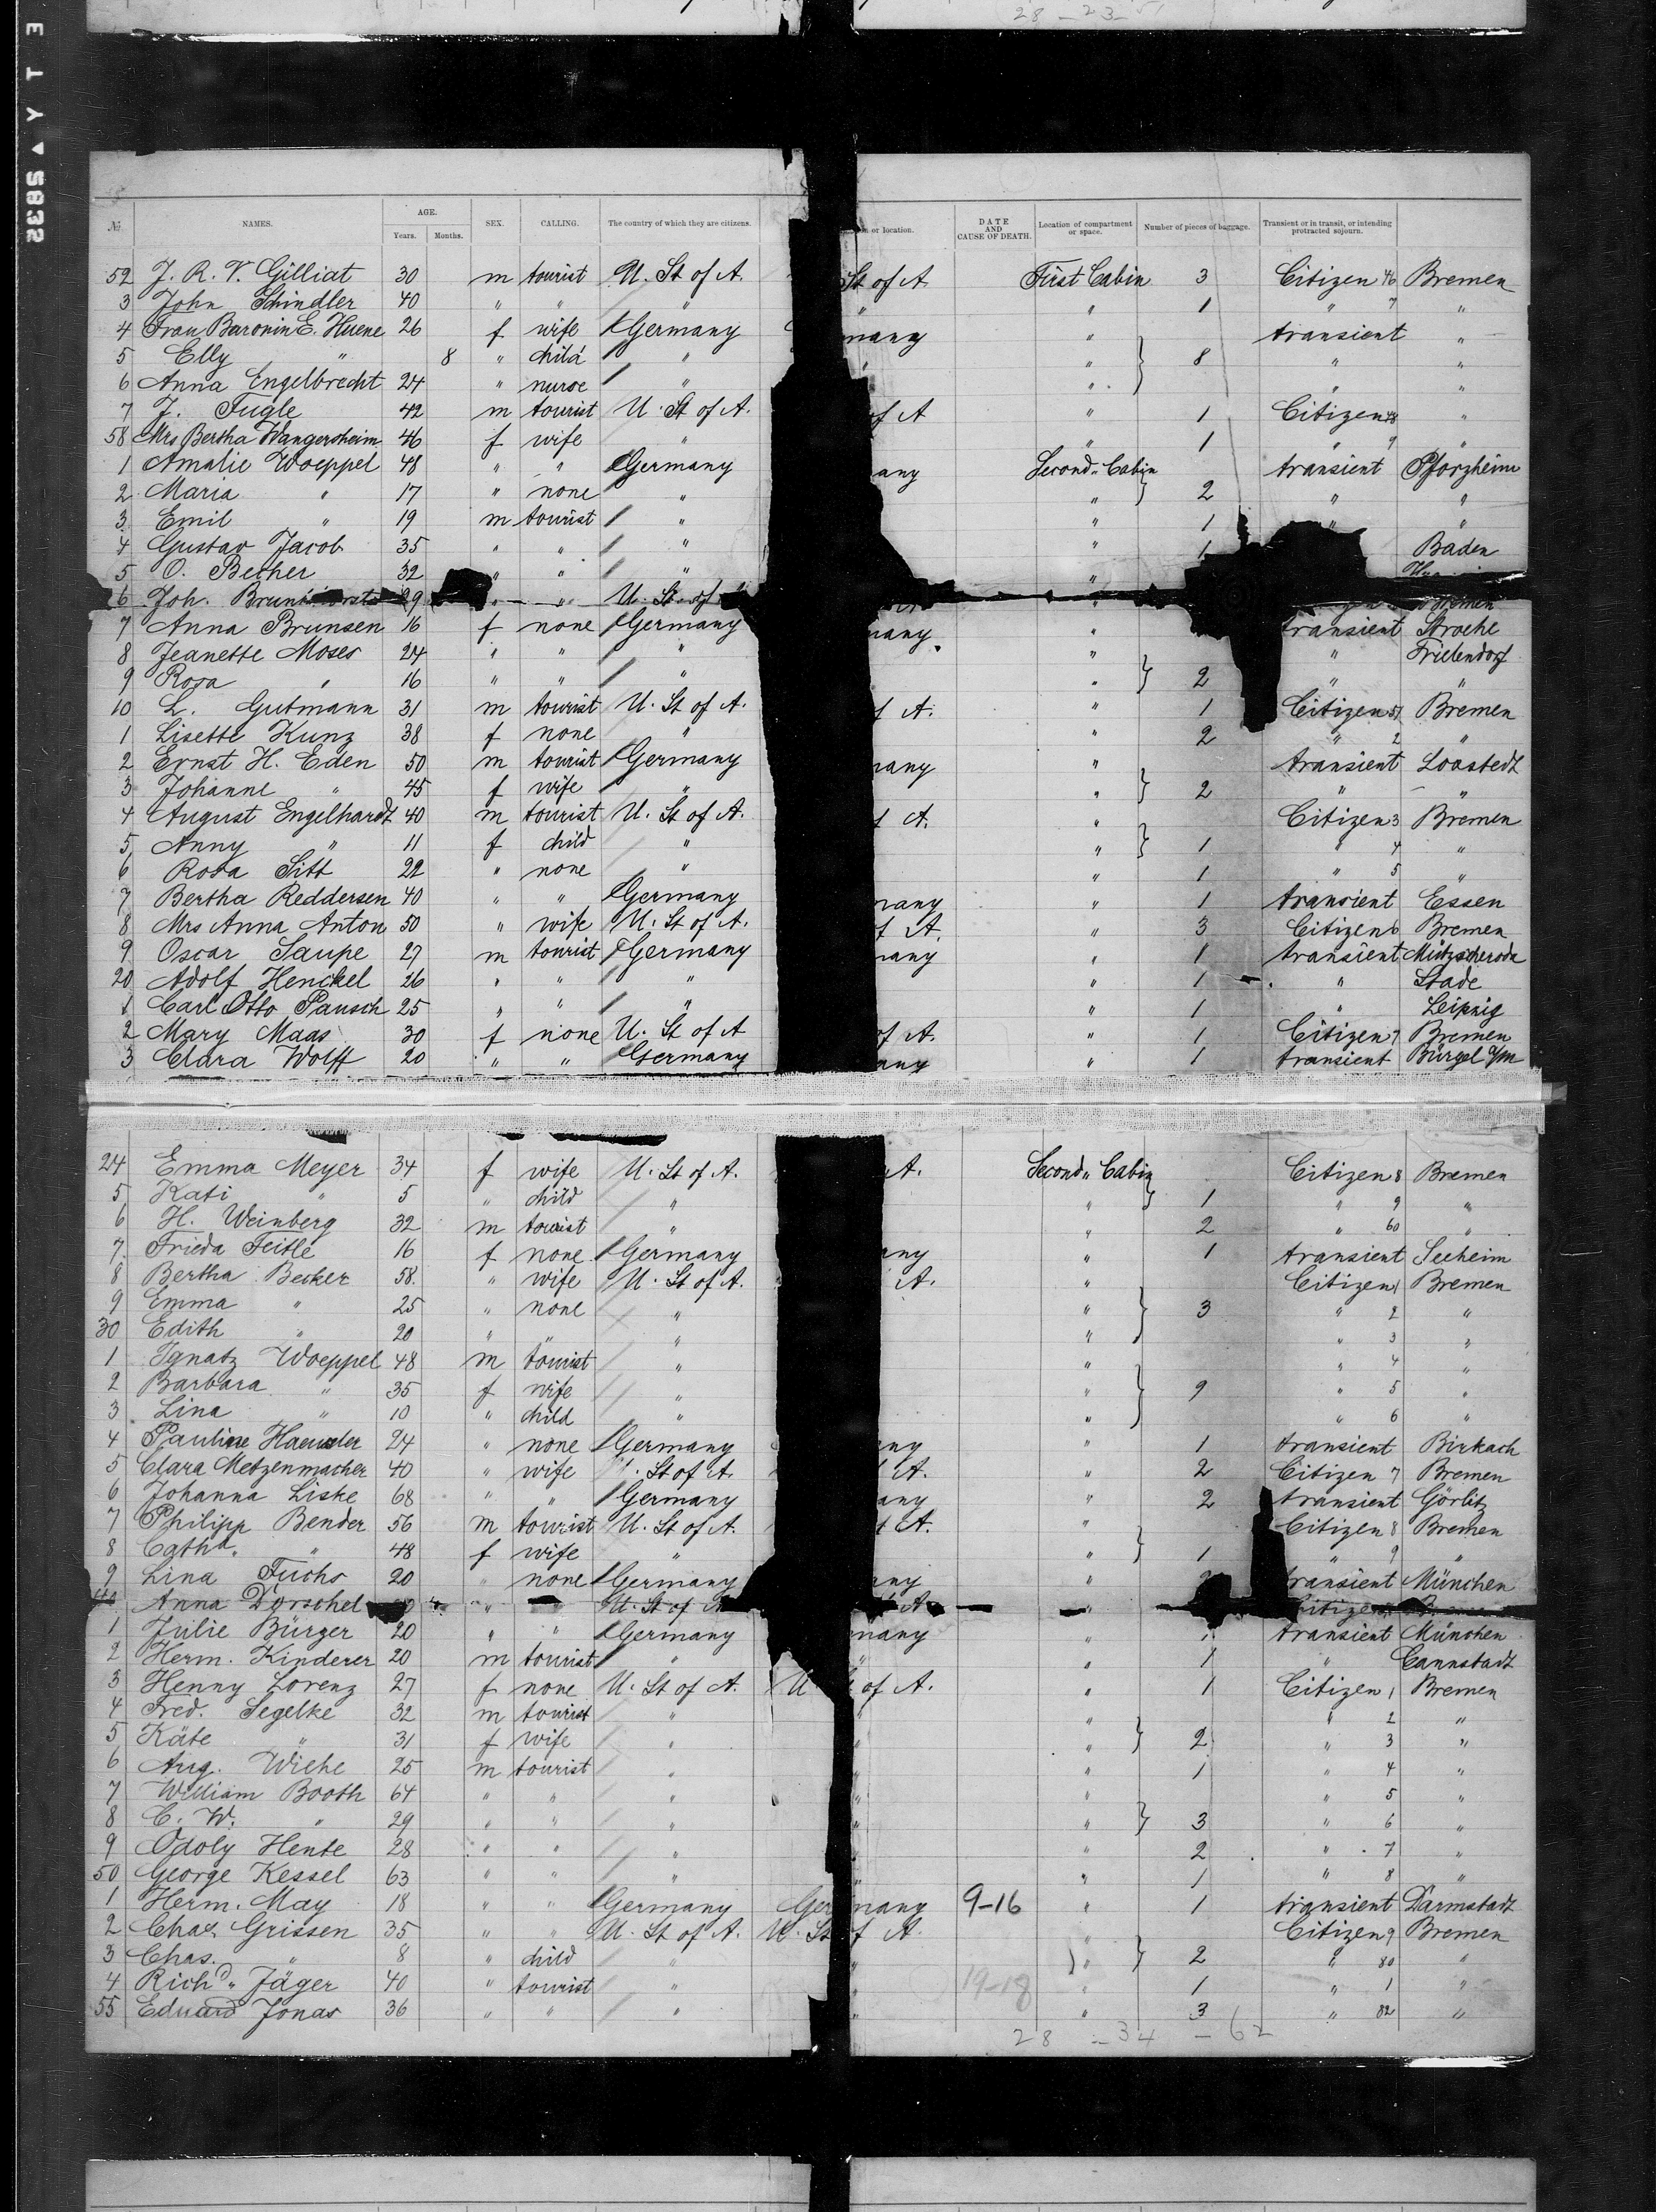 28 - 23 - 51
E T Y ◄ 5832
No. NAMES. AGE. Years. Months. SEX. CALLING. The country of which they are citizens. or location. DATE AND CAUSE OF DEATH. Location of compartment or space. Number of pieces of baggage. Transient or in transit, or intending protracted sojourn.
52 J. R. V. Gilliat 30 m tourist U. St of A. St of A. First Cabin 3 Citizen 46 Bremen
3 John Schindler 40 " " " " 1 " 7 "
4 Frau Baronin E. Huene 26 f wife Germany many " transient "
5 Elly " 8 " child " " " } 8 " "
6 Anna Engelbrecht 24 " nurse " " " "
7 J. Fugle 42 m tourist U. St of A. of A " 1 Citizen 48 "
58 Mrs Bertha Wangersheim 46 f wife " " 1 " 9 "
1 Amalie Woeppel 48 " " Germany any Second " Cabin transient Pforzheim
2 Maria " 17 " none " " } 2 " "
3 Emil " 19 m tourist " " 1 " "
4 Gustav Jacob 35 " " " " 1 Baden
5 O. Becher 32 " " " "
6 Joh. 29 " " U. St. of " Bremen
7 Anna Brunsen 16 f none Germany many " transient Stroehe
8 Jeanette Moses 24 " " " " " Frielendorf
9 Rosa " 16 " " " " } 2 " "
10 L. Gutmann 31 m tourist U. St of A. f A. " 1 Citizen 51 Bremen
1 Lisette Kunz 38 f none " " 2 " 2 "
2 Ernst H. Eden 50 m tourist Germany many " transient Loostedt
3 Johanne " 45 f wife " " } 2 " "
4 August Engelhardt 40 m tourist U. St of A. f A. " Citizen 3 Bremen
5 Anny " 11 f child " " } 1 " 4 "
6 Rosa Sitt 22 " none " " 1 " 5 "
7 Bertha Reddersen 40 " " Germany many " 1 transient Essen
8 Mrs Anna Anton 50 " wife U. St of A. f A. " 3 Citizen 6 Bremen
9 Oscar Saupe 27 m tourist Germany many " 1 transient Mützscheroda
20 Adolf Henckel 26 " " " " 1 " Stade
1 Carl Otto Pausch 25 " " " " 1 " Leipzig
2 Mary Maas 30 f none U. St of A of A. " 1 Citizen 7 Bremen
3 Clara Wolff 20 " " Germany any " 1 transient Bürgel a/m
24 Emma Meyer 34 f wife U. St of A. A. Second " Cabin Citizen 8 Bremen
5 Kati " 5 " child " " } 1 " 9 "
6 H. Weinberg 32 m tourist " " 2 " 60 "
7 Frieda Feitle 16 f none Germany any " 1 transient Seeheim
8 Bertha Becker 58 " wife U. St of A. A. " Citizen 1 Bremen
9 Emma " 25 " none " " } 3 " 2 "
30 Edith " 20 " " " " " 3 "
1 Ignatz Woeppel 48 m tourist " " " 4 "
2 Barbara " 35 f wife " " } 9 " 5 "
3 Lina " 10 " child " " " 6 "
4 Pauline Haeusler 24 " none Germany any " 1 transient Birkach
5 Clara Metzenmacher 40 " wife U. St of A. A. " 2 Citizen 7 Bremen
6 Johanna Liske 68 " " Germany any " 2 transient Görlitz
7 Philipp Bender 56 m tourist U. St of A. f A. " Citizen 8 Bremen
8 Catha. " 48 f wife " " } 1 " 9 "
9 Lina Fuchs 20 " none Germany any " transient München
40 Anna Dörschel " U. St of A A " Citizen
1 Julie Bürger 20 " " Germany many " 1 transient München
2 Herm. Kinderer 20 m tourist " " " 1 " Cannstadt
3 Henny Lorenz 27 f none U. St of A. U of A. " 1 Citizen 1 Bremen
4 Fred. Segelke 32 m tourist " " " " 2 "
5 Käte " 31 f wife " " " } 2 " 3 "
6 Aug. Wiehe 25 m tourist " " " 1 " 4 "
7 William Booth 64 " " " " " " 5 "
8 C. W. " 29 " " " " " } 3 " 6 "
9 Odoly Hente 28 " " " " " 2 " 7 "
50 George Kessel 63 " " " " " 1 " 8 "
1 Herm. May 18 " " Germany Germany 9-16 " 1 transient Darmstadt
2 Chas. Grissen 35 " " U. St of A. U. St of A. " Citizen 9 Bremen
3 Chas. " 8 " child " " " } 2 " 80 "
4 Richd. Jäger 40 " tourist " " 19-18 " 1 " 1 "
55 Eduard Jonas 36 " " " " " 3 " 82 "
28 - 34 - 62